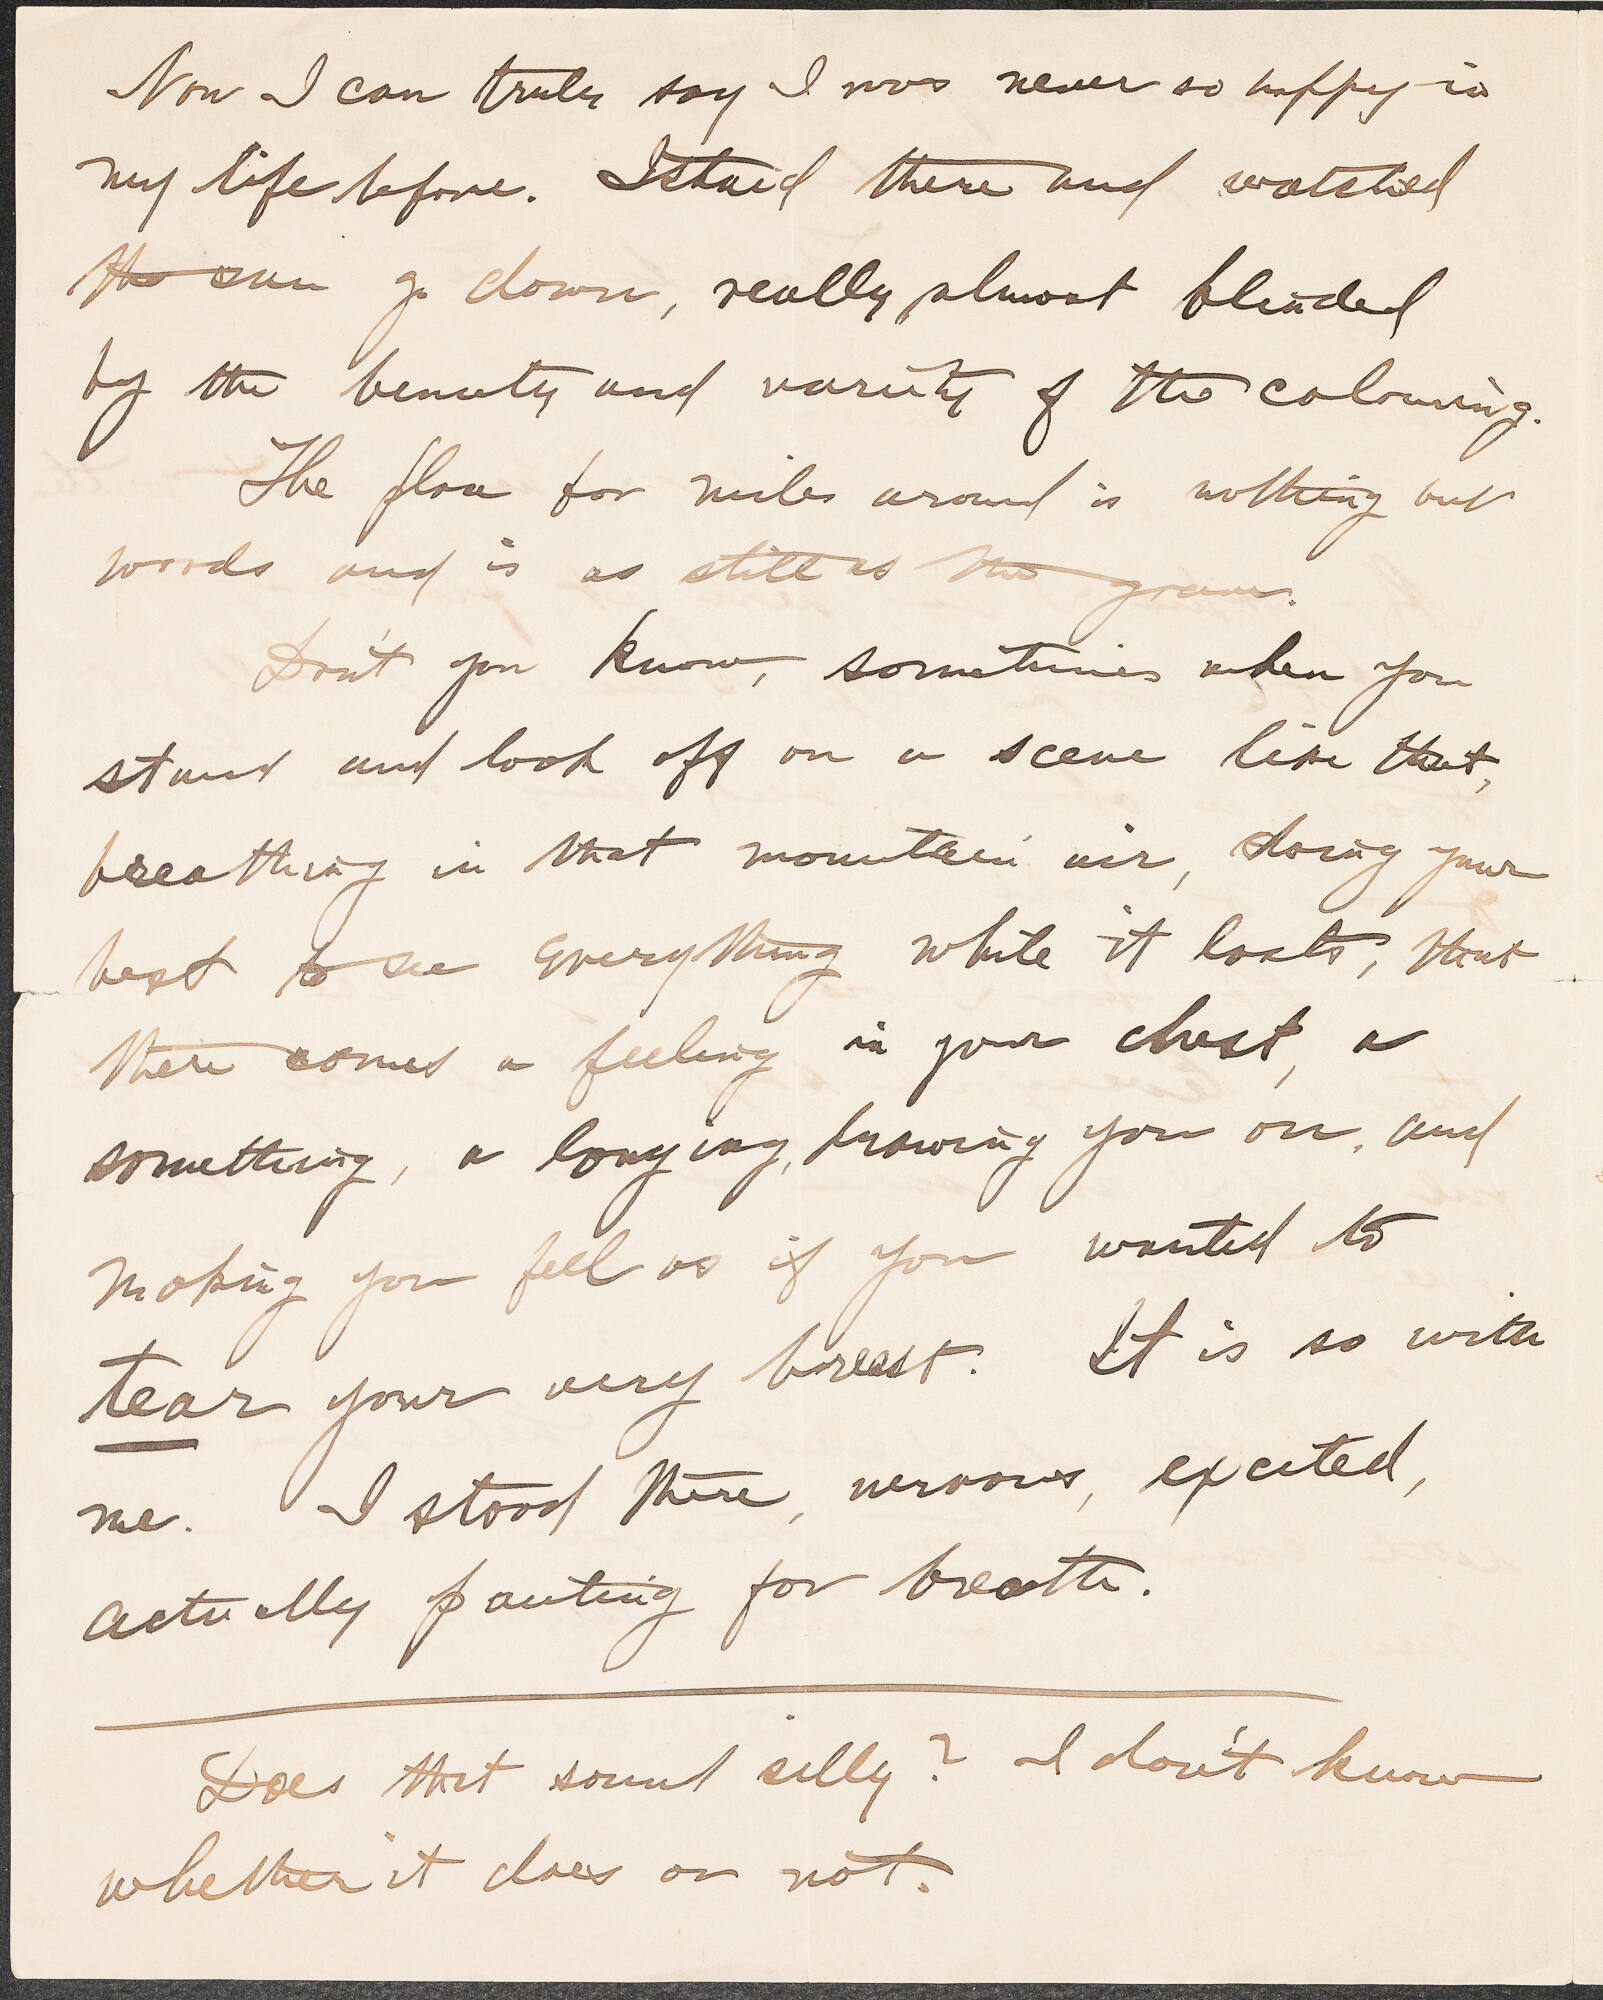 Now I can truly say I was never so happy in
my life before. I staid there and watched
the sun go down, really almost blinded
by the beauty and variety of the colouring.
The floor for miles around is nothing but
woods and is as still as the grave.
Don't you know, sometimes when you
stand and look off on a scene like that,
breathing in that mountain air, doing your
best to see everything while it lasts, that
there comes a feeling in your chest, a
something, a longing, drawing you on, and
making you feel as if you wanted to
tear your very breast. It is so with
me. I stood there, nervous, excited,
actually panting for breath.
Does that sound silly? I don't know
whether it does or not.